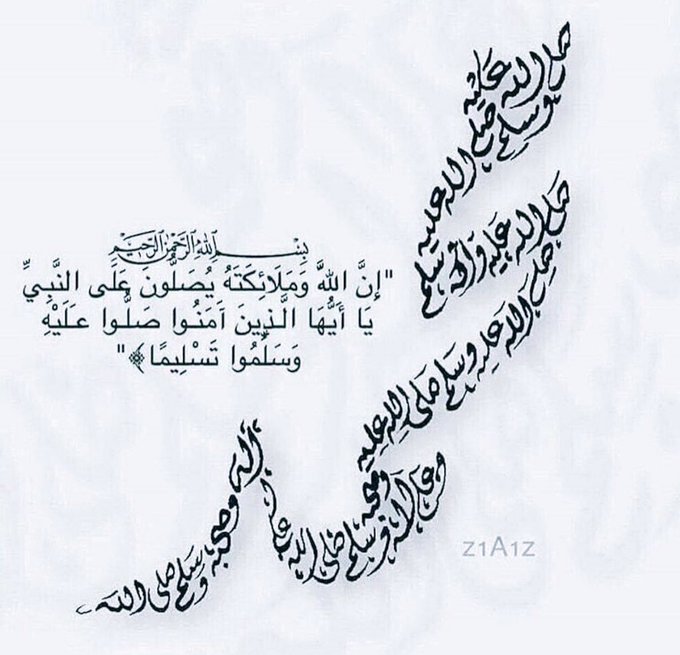 صلى الله عليه
وسلم صلى الله عليه وسلم
صلى الله عليه وآله
وسلم صلى الله عليه وسلم صلى الله عليه
وعلى آله وصحبه وسلم صلى الله عليه
آله وصحبه وسلم صلى الله
بسم الله الرحمن الرحيم
"إِنَّ اللَّهَ وَمَلَائِكَتَهُ يُصَلُّونَ عَلَى النَّبِيِّ
يَا أَيُّهَا الَّذِينَ آمَنُوا صَلُّوا عَلَيْهِ
وَسَلِّمُوا تَسْلِيمًا"
z1A1z